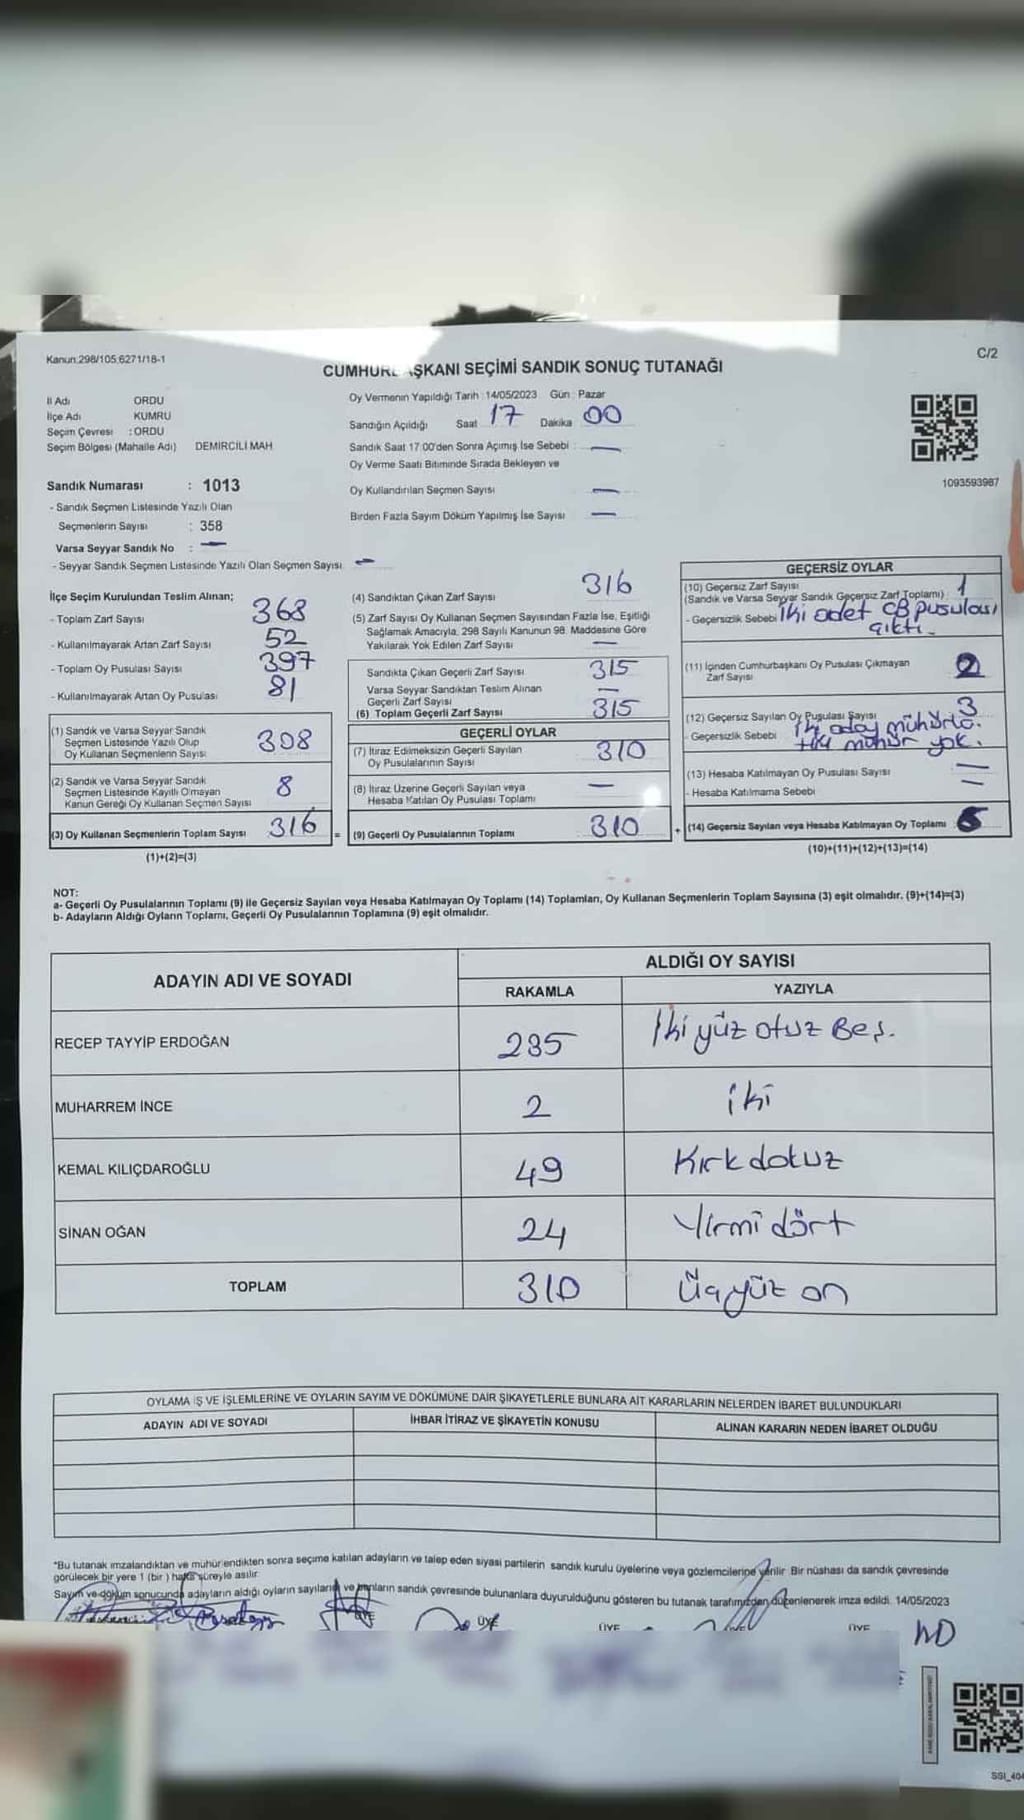 Kanun:298/105,6271/18-1
C/2
CUMHURBAŞKANI SEÇİMİ SANDIK SONUÇ TUTANAĞI
İl Adı ORDU
İlçe Adı KUMRU
Seçim Çevresi : ORDU
Seçim Bölgesi (Mahalle Adı) DEMİRCİLİ MAH
Sandık Numarası : 1013
- Sandık Seçmen Listesinde Yazılı Olan
Seçmenlerin Sayısı : 358
Varsa Seyyar Sandık No : —
- Seyyar Sandık Seçmen Listesinde Yazılı Olan Seçmen Sayısı —
Oy Vermenin Yapıldığı Tarih :14/05/2023 Gün : Pazar
Sandığın Açıldığı Saat 17 Dakika 00
Sandık Saat 17.00'den Sonra Açımış İse Sebebi : —
Oy Verme Saati Bitiminde Sırada Bekleyen ve
Oy Kullandırılan Seçmen Sayısı —
Birden Fazla Sayım Döküm Yapılmış İse Sayısı —
1093593987
İlçe Seçim Kurulundan Teslim Alınan;
- Toplam Zarf Sayısı 368
- Kullanılmayarak Artan Zarf Sayısı 52
- Toplam Oy Pusulası Sayısı 397
- Kullanılmayarak Artan Oy Pusulası 81
(1) Sandık ve Varsa Seyyar Sandık
Seçmen Listesinde Yazılı Olup
Oy Kullanan Seçmenlerin Sayısı 308
(2) Sandık ve Varsa Seyyar Sandık
Seçmen Listesinde Kayıtlı Olmayan
Kanun Gereği Oy Kullanan Seçmen Sayısı 8
(3) Oy Kullanan Seçmenlerin Toplam Sayısı 316 =
(1)+(2)=(3)
(4) Sandıktan Çıkan Zarf Sayısı 316
(5) Zarf Sayısı Oy Kullanan Seçmen Sayısından Fazla İse, Eşitliği
Sağlamak Amacıyla, 298 Sayılı Kanunun 98. Maddesine Göre
Yakılarak Yok Edilen Zarf Sayısı —
Sandıkta Çıkan Geçerli Zarf Sayısı 315
Varsa Seyyar Sandıktan Teslim Alınan
Geçerli Zarf Sayısı —
(6) Toplam Geçerli Zarf Sayısı 315
GEÇERLİ OYLAR
(7) İtiraz Edilmeksizin Geçerli Sayılan
Oy Pusulalarının Sayısı 310
(8) İtiraz Üzerine Geçerli Sayılan veya
Hesaba Katılan Oy Pusulası Toplamı —
(9) Geçerli Oy Pusulalarının Toplamı 310 +
GEÇERSİZ OYLAR
(10) Geçersiz Zarf Sayısı
(Sandık ve Varsa Seyyar Sandık Geçersiz Zarf Toplamı) : 1
- Geçersizlik Sebebi İki adet CB pusulası
çıktı.
(11) İçinden Cumhurbaşkanı Oy Pusulası Çıkmayan
Zarf Sayısı 2
(12) Geçersiz Sayılan Oy Pusulası Sayısı 3
- Geçersizlik Sebebi İki aday mühürlü.
mühür yok.
(13) Hesaba Katılmayan Oy Pusulası Sayısı —
- Hesaba Katılmama Sebebi —
(14) Geçersiz Sayılan veya Hesaba Katılmayan Oy Toplamı
(10)+(11)+(12)+(13)=(14)
NOT:
a- Geçerli Oy Pusulalarının Toplamı (9) ile Geçersiz Sayılan veya Hesaba Katılmayan Oy Toplamı (14) Toplamları, Oy Kullanan Seçmenlerin Toplam Sayısına (3) eşit olmalıdır. (9)+(14)=(3)
b- Adayların Aldığı Oyların Toplamı, Geçerli Oy Pusulalarının Toplamına (9) eşit olmalıdır.
ADAYIN ADI VE SOYADI
ALDIĞI OY SAYISI
RAKAMLA YAZIYLA
RECEP TAYYİP ERDOĞAN 235 İki yüz otuz Beş.
MUHARREM İNCE 2 iki
KEMAL KILIÇDAROĞLU 49 Kırk dokuz
SİNAN OĞAN 24 Yirmi dört
TOPLAM 310 Üçyüz on
OYLAMA İŞ VE İŞLEMLERİNE VE OYLARIN SAYIM VE DÖKÜMÜNE DAİR ŞİKAYETLERLE BUNLARA AİT KARARLARIN NELERDEN İBARET BULUNDUKLARI
ADAYIN ADI VE SOYADI İHBAR İTİRAZ VE ŞİKAYETİN KONUSU ALINAN KARARIN NEDEN İBARET OLDUĞU
*Bu tutanak imzalandıktan ve mühürlendikten sonra seçime katılan adayların ve talep eden siyasi partilerin sandık kurulu üyelerine veya gözlemcilerine verilir. Bir nüshası da sandık çevresinde
görülecek bir yere 1 (bir ) hafta süreyle asılır.
Sayım ve döküm sonucunda adayların aldığı oyların sayılarını ve bunların sandık çevresinde bulunanlara duyurulduğunu gösteren bu tutanak tarafımızdan düzenlenerek imza edildi. 14/05/2023
ÜYE ÜYE ÜYE ÜYE ÜYE